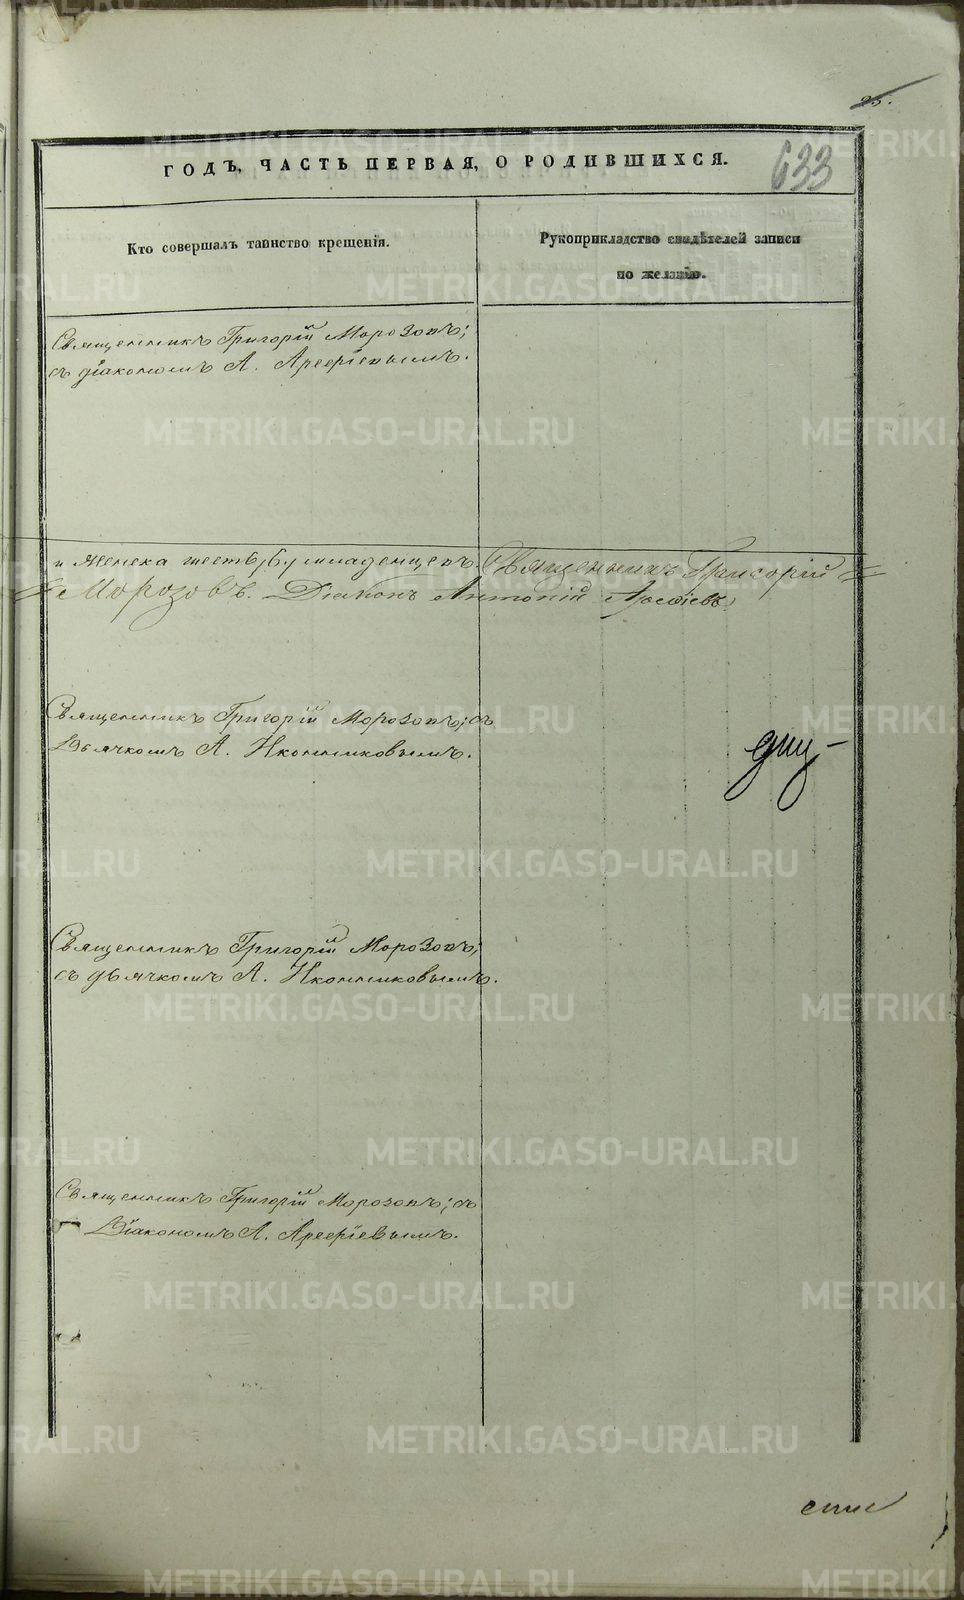 25.
ГОДЪ, ЧАСТЬ ПЕРВАЯ, О РОДИВШИХСЯ.
633
Кто совершалъ таинство крещенія.
Рукоприкладство свидѣтелей записи
по желанію.
Священникъ Григорій Морозовъ;
съ діакономъ А. Арефіевымъ.
и женска шесть /6/ младенцевъ. Священникъ Григорій
Морозовъ. Діаконъ Антоній Арефіевъ
Священникъ Григорій Морозовъ; съ
Дьячкомъ А. Иконниковымъ.
Священникъ Григорій Морозовъ;
съ дьячкомъ А. Иконниковымъ.
Священникъ Григорій Морозовъ; съ
Діакономъ А. Арефіевымъ.
METRIKI.GASO-URAL.RU